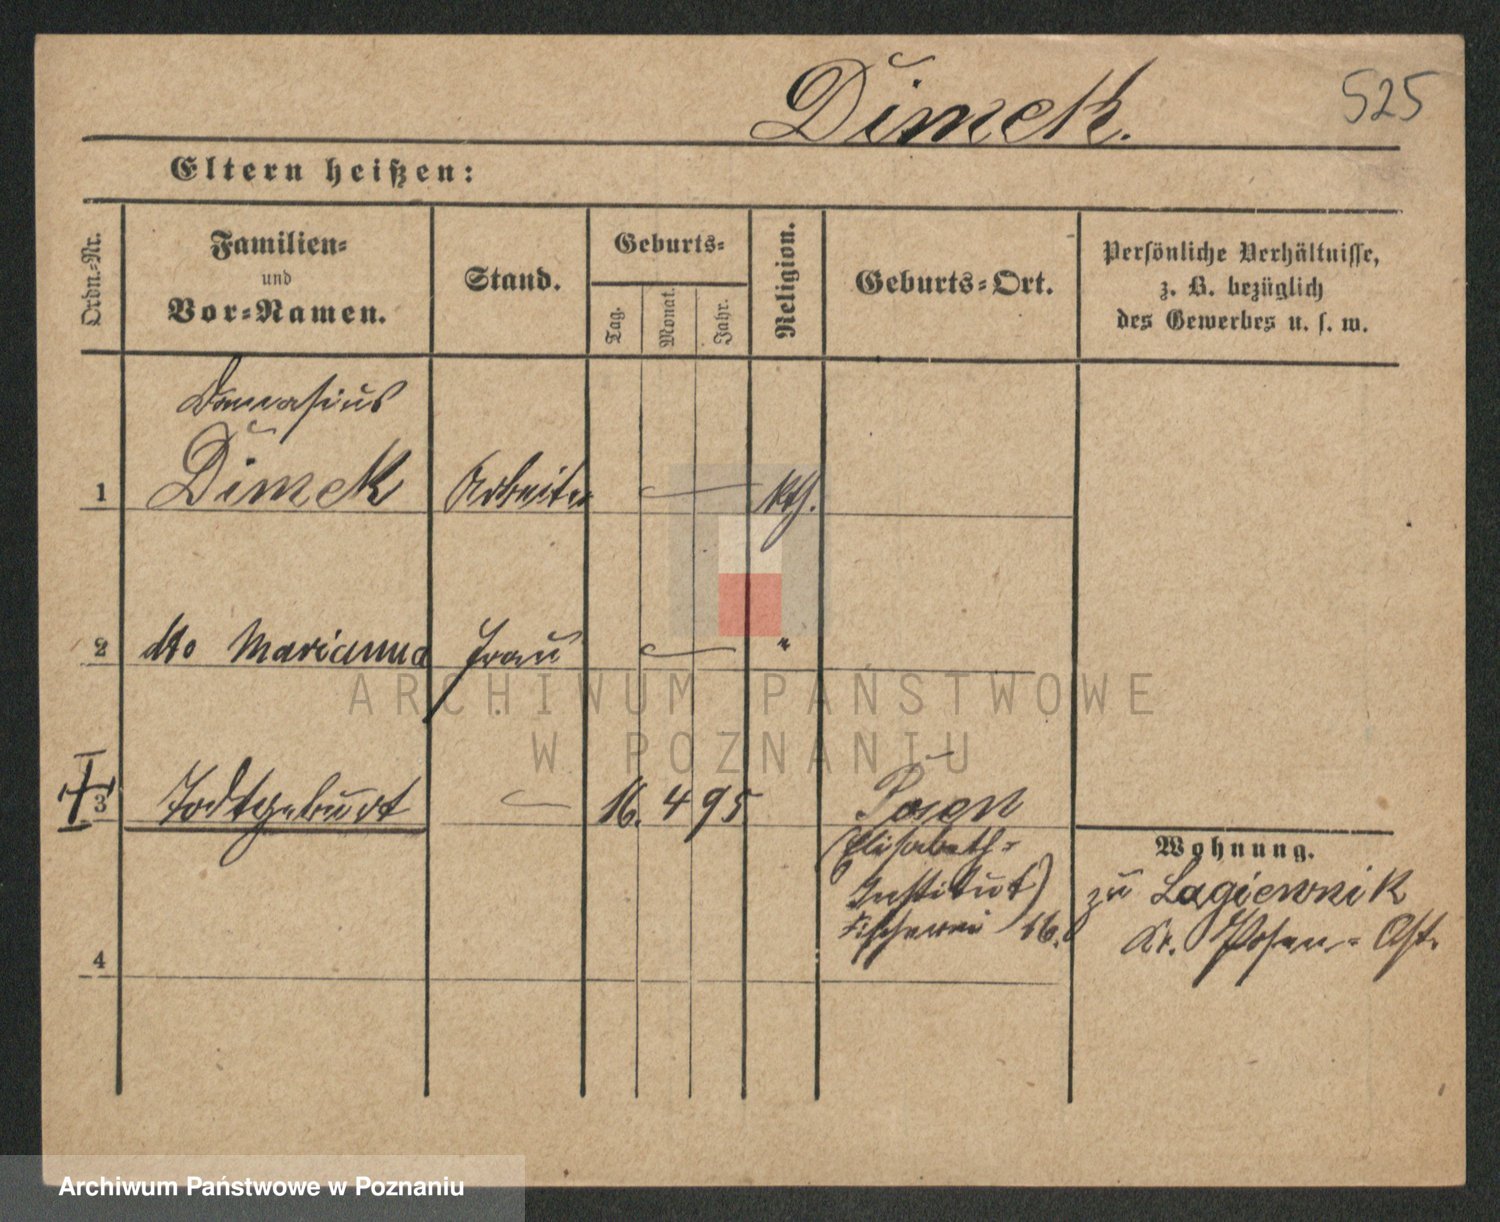 Dimek.
525
Eltern heißen:
Ordn.-Nr.
Familien-
und
Vor-Namen.
Stand.
Geburts-
Tag.
Monat.
Jahr.
Religion.
Geburts-Ort.
Persönliche Verhältnisse,
z. B. bezüglich
des Gewerbes u. s. w.
Damasius
1 Dimek Arbeiter — kth.
2 dto Marianna Frau — "
ARCHIWUM PAŃSTWOWE
W POZNANIU
3 Todtgeburt — 16. 4 95 Posen
(Elisabeth-
Institut)
Fischerei 16.
Wohnung.
zu Lagiewnik
Kr. Posen-Ost.
4
Archiwum Państwowe w Poznaniu